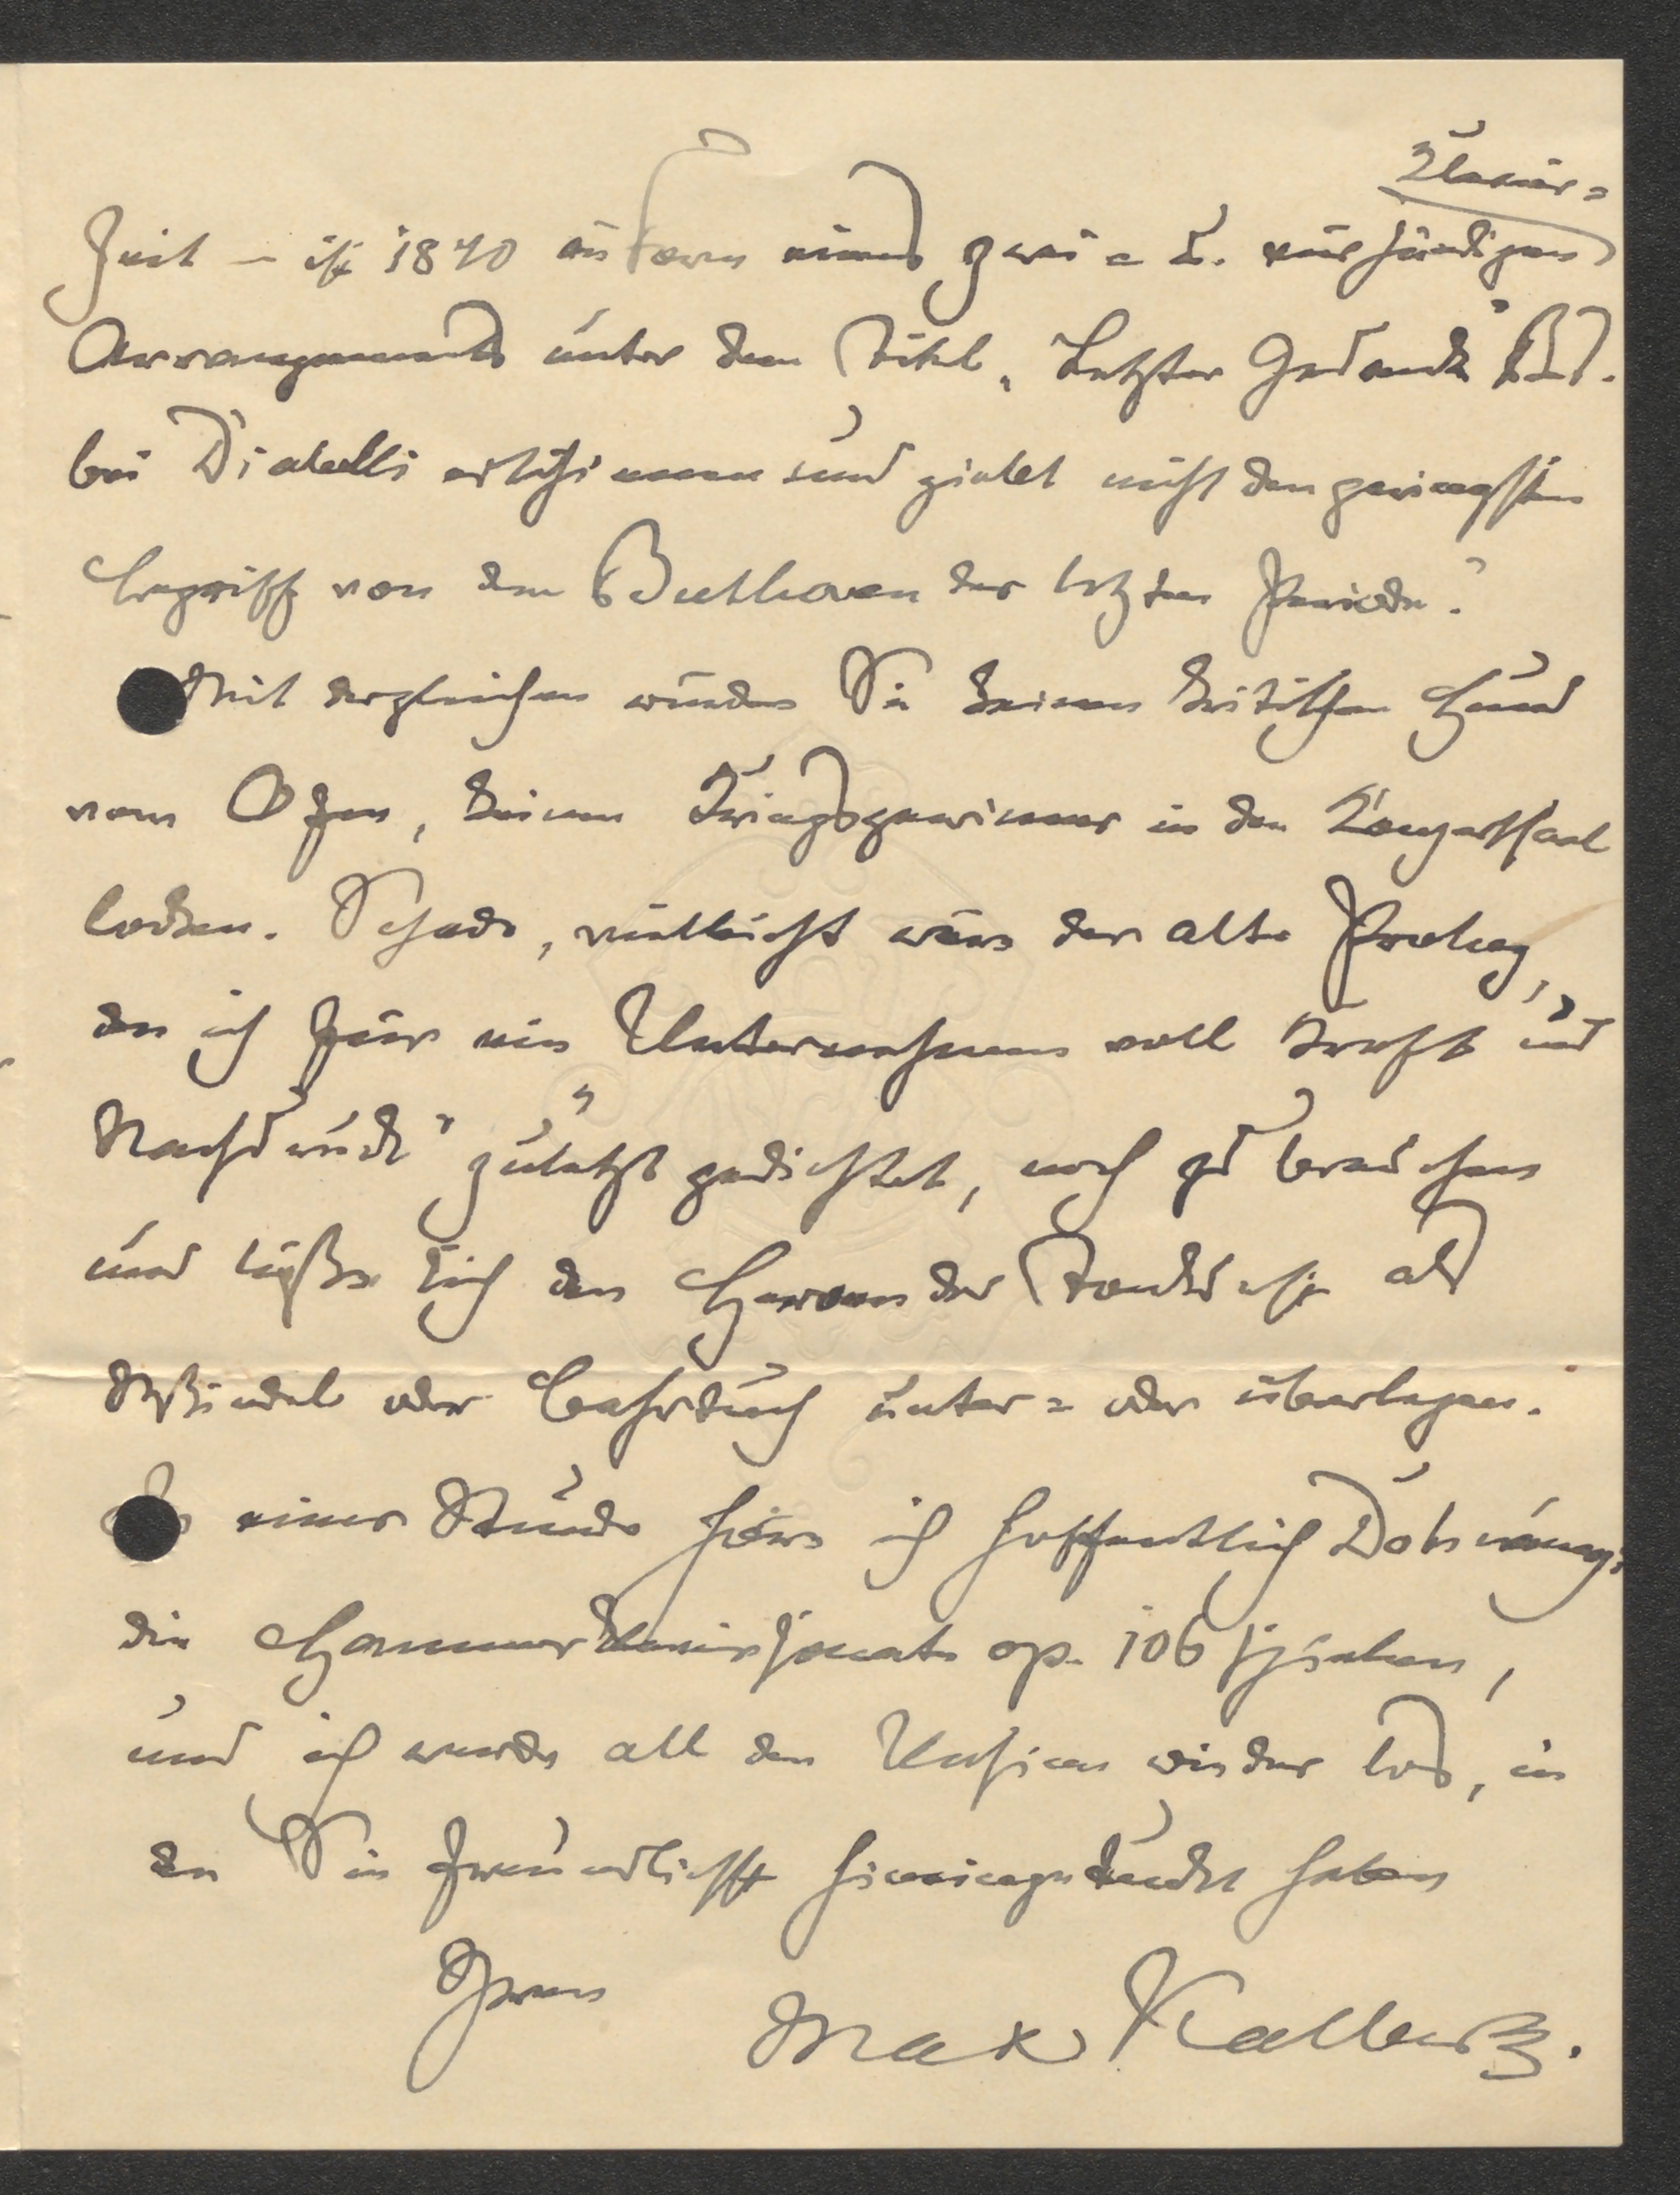 Klavier=
Zeit – ist 1840 in Form eines zwei= u. vierhändigen
Arrangements unter dem Titel „Letzter Gedanke"
bei Diabelli erschienen und giebt nicht den geringsten
Begriff von dem Beethoven der letzten Periode.
Mit dergleichen würden Sie keinen kritischen Hund
vom Ofen, keinen Kriegsgewinner in den Konzertsaal
locken. Schade, vielleicht wäre der alte Prolog,
den ich für ein Unternehmen voll Kraft und
Nachdruck" zuletzt gedichtet, noch zu brauchen
und ließe sich den Heroen der Tonkunst als
oder Bahrtuch unter= oder überlegen.
einer Stunde höre ich hoffentlich Dohnányi
die Hammerklaviersonate op. 106 spielen,
und ich werde all den Unsinn wieder los, in
den Sie freundlichst hineingeduckt haben
Ihren
Max Kalbeck.